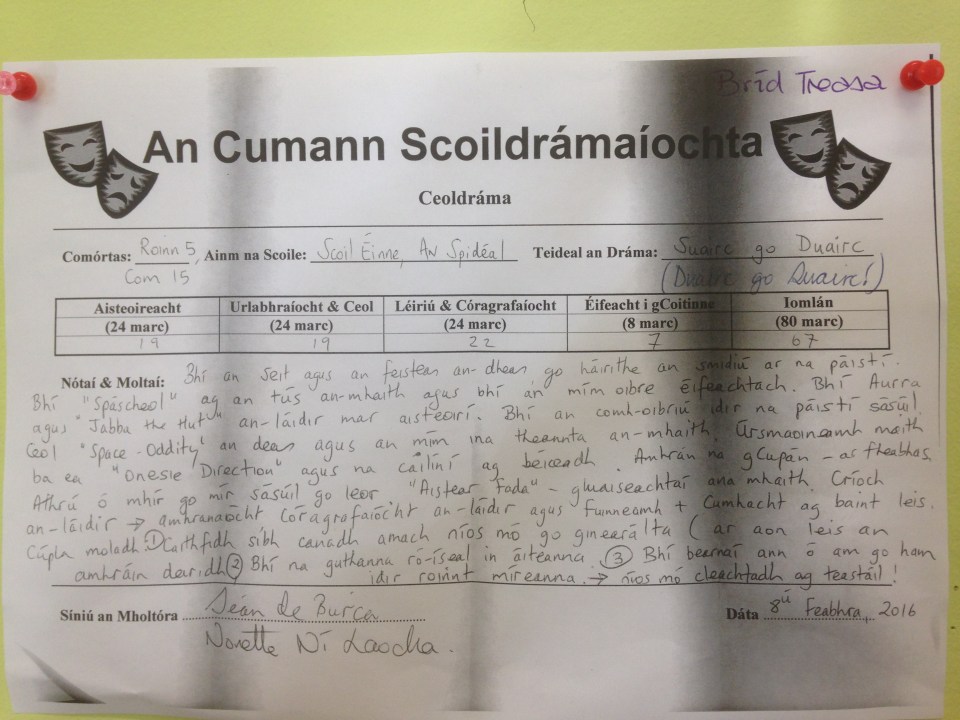 Bríd Treasa
An Cumann Scoildrámaíochta
Ceoldráma
Comórtas: Roinn 5, Ainm na Scoile: Scoil Éinne, An Spidéal Teideal an Dráma: Suairc go Duairc
Com 15 (Duairc go Suairc!)
Aisteoireacht Urlabhraíocht & Ceol Léiriú & Córagrafaíocht Éifeacht i gCoitinne Iomlán
(24 marc) (24 marc) (24 marc) (8 marc) (80 marc)
19 19 22 7 67
Nótaí & Moltaí: Bhí an seit agus an feisteas an-dheas, go háirithe an smidiú ar na páistí.
Bhí "Spáscheol" ag an tús an-mhaith agus bhí an mím oibre éifeachtach. Bhí Aurra
agus "Jabba the Hut" an-láidir mar aisteoirí. Bhí an comh-oibriú idir na páistí sásúil.
Ceol "Space-Oddity" an deas agus an mím ina theannta an-mhaith. Ársmaoineamh maith
ba ea "Onesie Direction" agus na cailíní ag béiceadh. Amhrán na gCupán - as fheabhas.
Athrú ó mhír go mír sásúil go leor. "Aistear fada" - gluaiseachtaí ana mhaith. Críoch
an-láidir → amhranaíocht córagrafaíocht an-láidir agus fuinneamh + Cumhacht ag baint leis.
Cúpla moladh ① Caithfidh sibh canadh amach níos mó go ginearálta (ar aon leis an
amhráin deiridh ② Bhí na guthanna ró-íseal in áiteanna. ③ Bhí bearnaí ann ó am go ham
idir roinnt míreanna. → níos mó cleachtadh ag teastáil!
Síniú an Mholtóra Seán de Búrca Dáta 8ú Feabhra, 2016
Norette Ní Laocha.